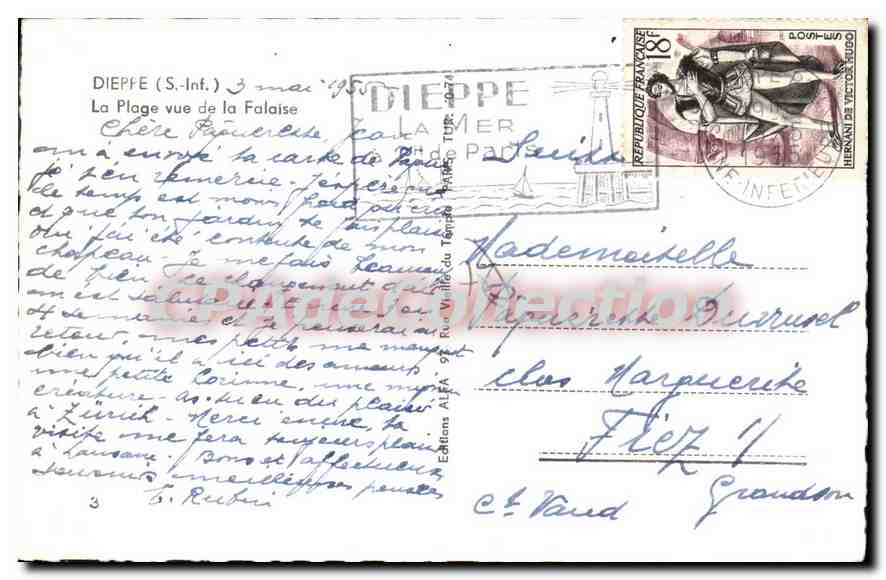 DIEPPE (S.-Inf.) 3 mai 1955
La Plage vue de la Falaise
Chère Pâquerette, Jean
m'a envoyé ta carte de Pâques
je t'en remercie. J'espère que
le temps est
et que ton jardin te
Oui j'ai été contente de mon
chapeau. Je me fais beaucoup
de bien, le changement d'air
m'est salutaire et
4 semaines et je penserai au
retour, mes petits me manquent
bien qu'il y a ici des amours
une petite Corinne, une
créature. As-tu eu du plaisir
à Zürich. Merci encore, ta
visite me fera toujours plaisir
à Lausanne. Bons et affectueux
souvenirs meilleures pensées
Rubin
3
Editions ALFA 97 Rue Vieille du Temple PARIS TUR. 40-74
DIEPPE
LA MER
RÉPUBLIQUE FRANÇAISE
18F
POSTES
HERNANI DE VICTOR HUGO
INFERIEURE
Suisse
Mademoiselle
Pâquerette
clos Marguerite
Fiez s/
Grandson
Ct Vaud
CPA de Collection